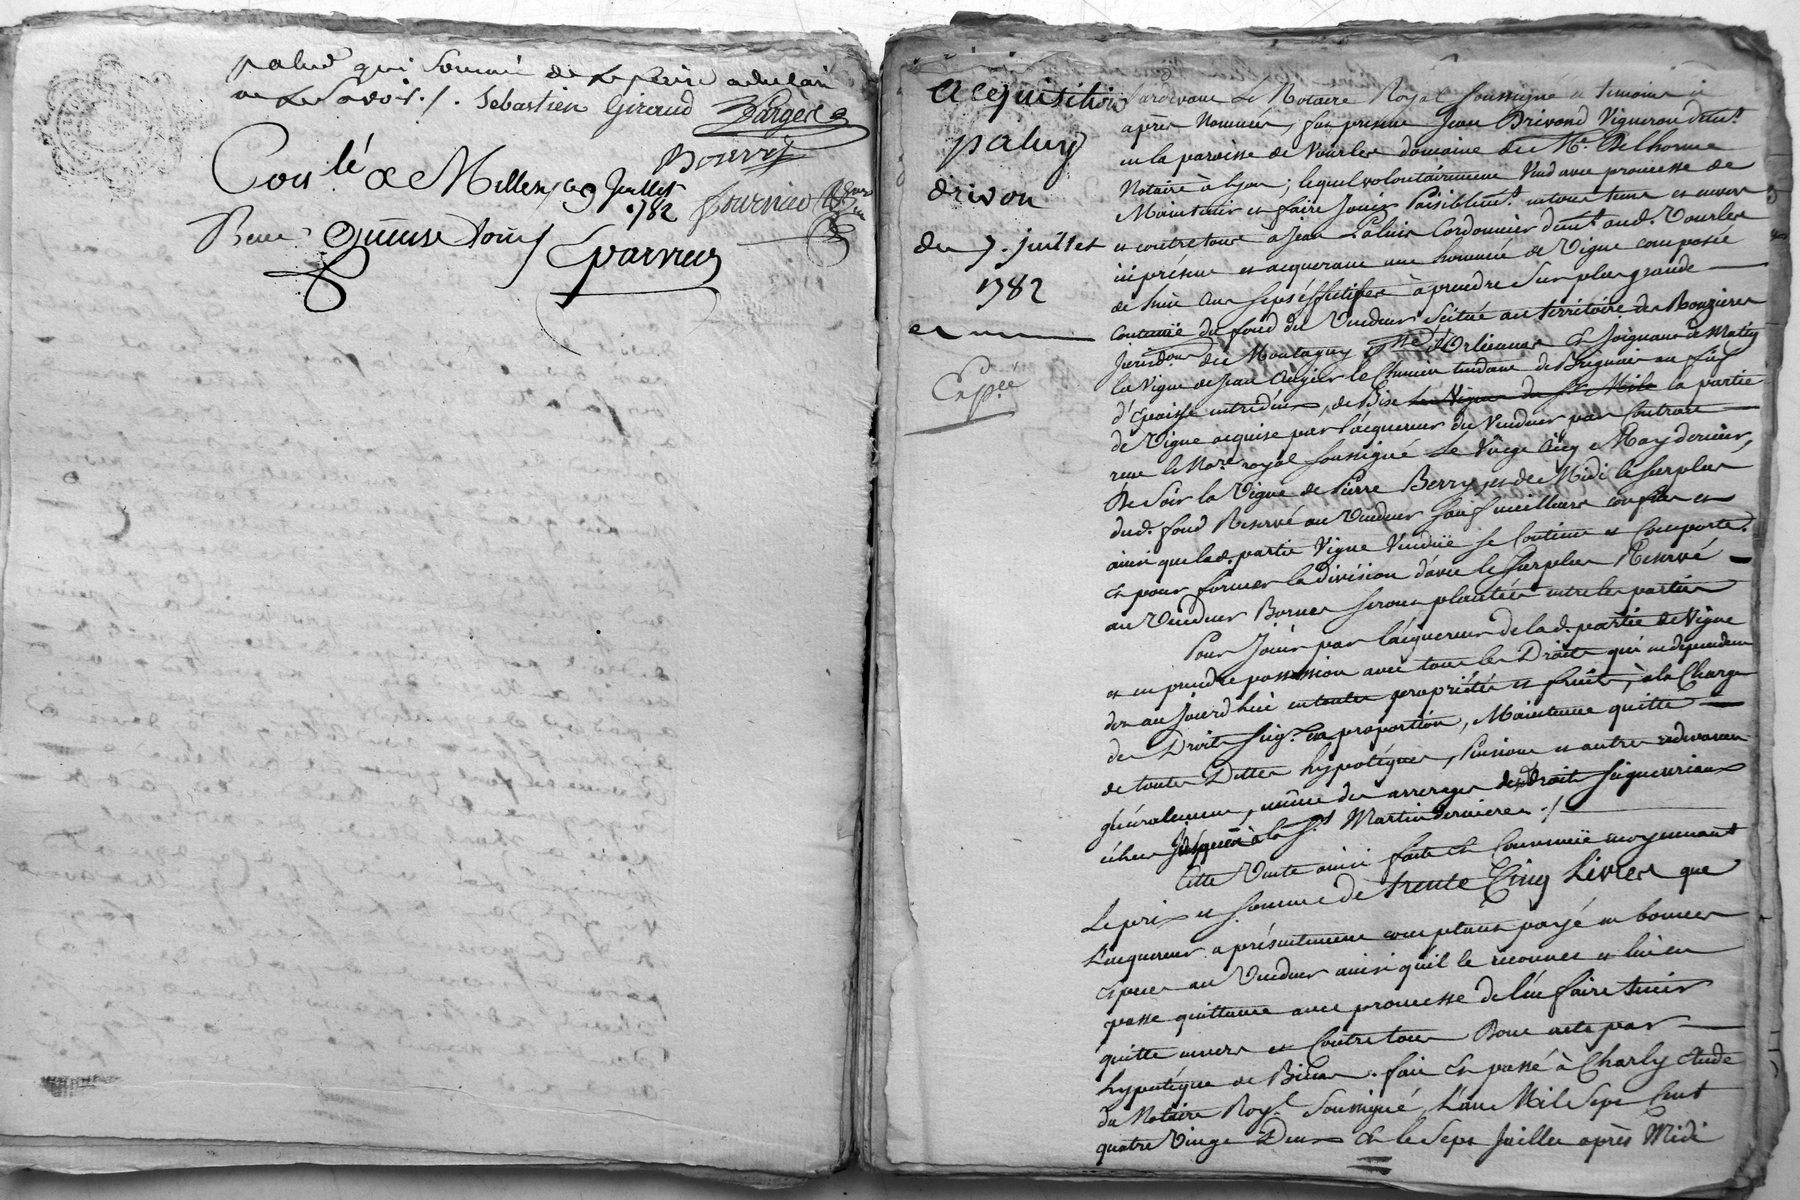 palud qui Sommé de le faire a declaré
ne le Savoir ./. Sebastien Giraud Barge
Bourrit
Con.lé a Millery ce 9 Juillet
1782 fournier
Reçu quinze sous
Acquisition
paluy
drivon
du 7. juillet
1782
Expée
Pardevant Le Notaire Royal soussigné et temoins ci
après Nommés, fut présent Jean Drivond Vigneron demt
en la paroisse de Vourles domaine de Mr Delhorme
Notaire à Lyon; lequel volontairement Vend avec promesse de
Maintenir et faire Jouir Paisiblemt envers tous et
contre tous à Jean Palui Cordonnier demt aud. Vourles
ici présent et acquerant une hommée de Vigne composée
de huit Cens seps éffectifs à prendre Sur plus grande
Contenüe du fond du Vendeur Scitué au territoire des Bouzieres
Jurisdon de Montagny et Joignant à Matin
la Vigne de Jean le Chemin tendant de Brignais au
d'Epaisse entredeux, de Bise les Vignes du Sr la partie
de Vigne acquise par l'acquereur du Vendeur par Contrat
reçu le Nore royal soussigné Le Vingt Cinq May dernier,
De Soir la Vigne de Pierre Berry, et de Midi le Surplus
dud. fond Reservé au Vendeur sauf meilleurs confins et
ainsi que lad. partie Vigne Vendüe se Contient et Comporte.
et pour former la division d'avec le Surplus Reservé
au Vendeur Bornes seront plantées entre les parties
Pour Joüir par l'acquereur de lad. partie de Vigne
et en prendre possession avec tous les Droits qui en dependent
dès aujourd'hui en toute propriété et fruits, à la Charge
des Droits Seig. en proportion, Maintenue quitte
de toutes Dettes hypotéques, Pensions et autres redevances
généralement, même des arrerages desd Droits Seigneuriaux
échus jusques à la St Martin derniere ./.
Cette Vente ainsi faite et Convenüe moyennant
Le prix et Somme de trente Cinq Livres que
L'acquereur a présentement comptant payé en bonnes
especes au Vendeur ainsi qu'il le reconnoit et lui en
passe quittance avec promesse de l'en faire tenir
quitte envers et Contre tous Dont acte par
hypotéque de Biens. fait et passé à Charly Etude
du Notaire Royl Soussigné, L'an Mil Sept Cent
quatre Vingt Deux et le Sept Juillet après Midi